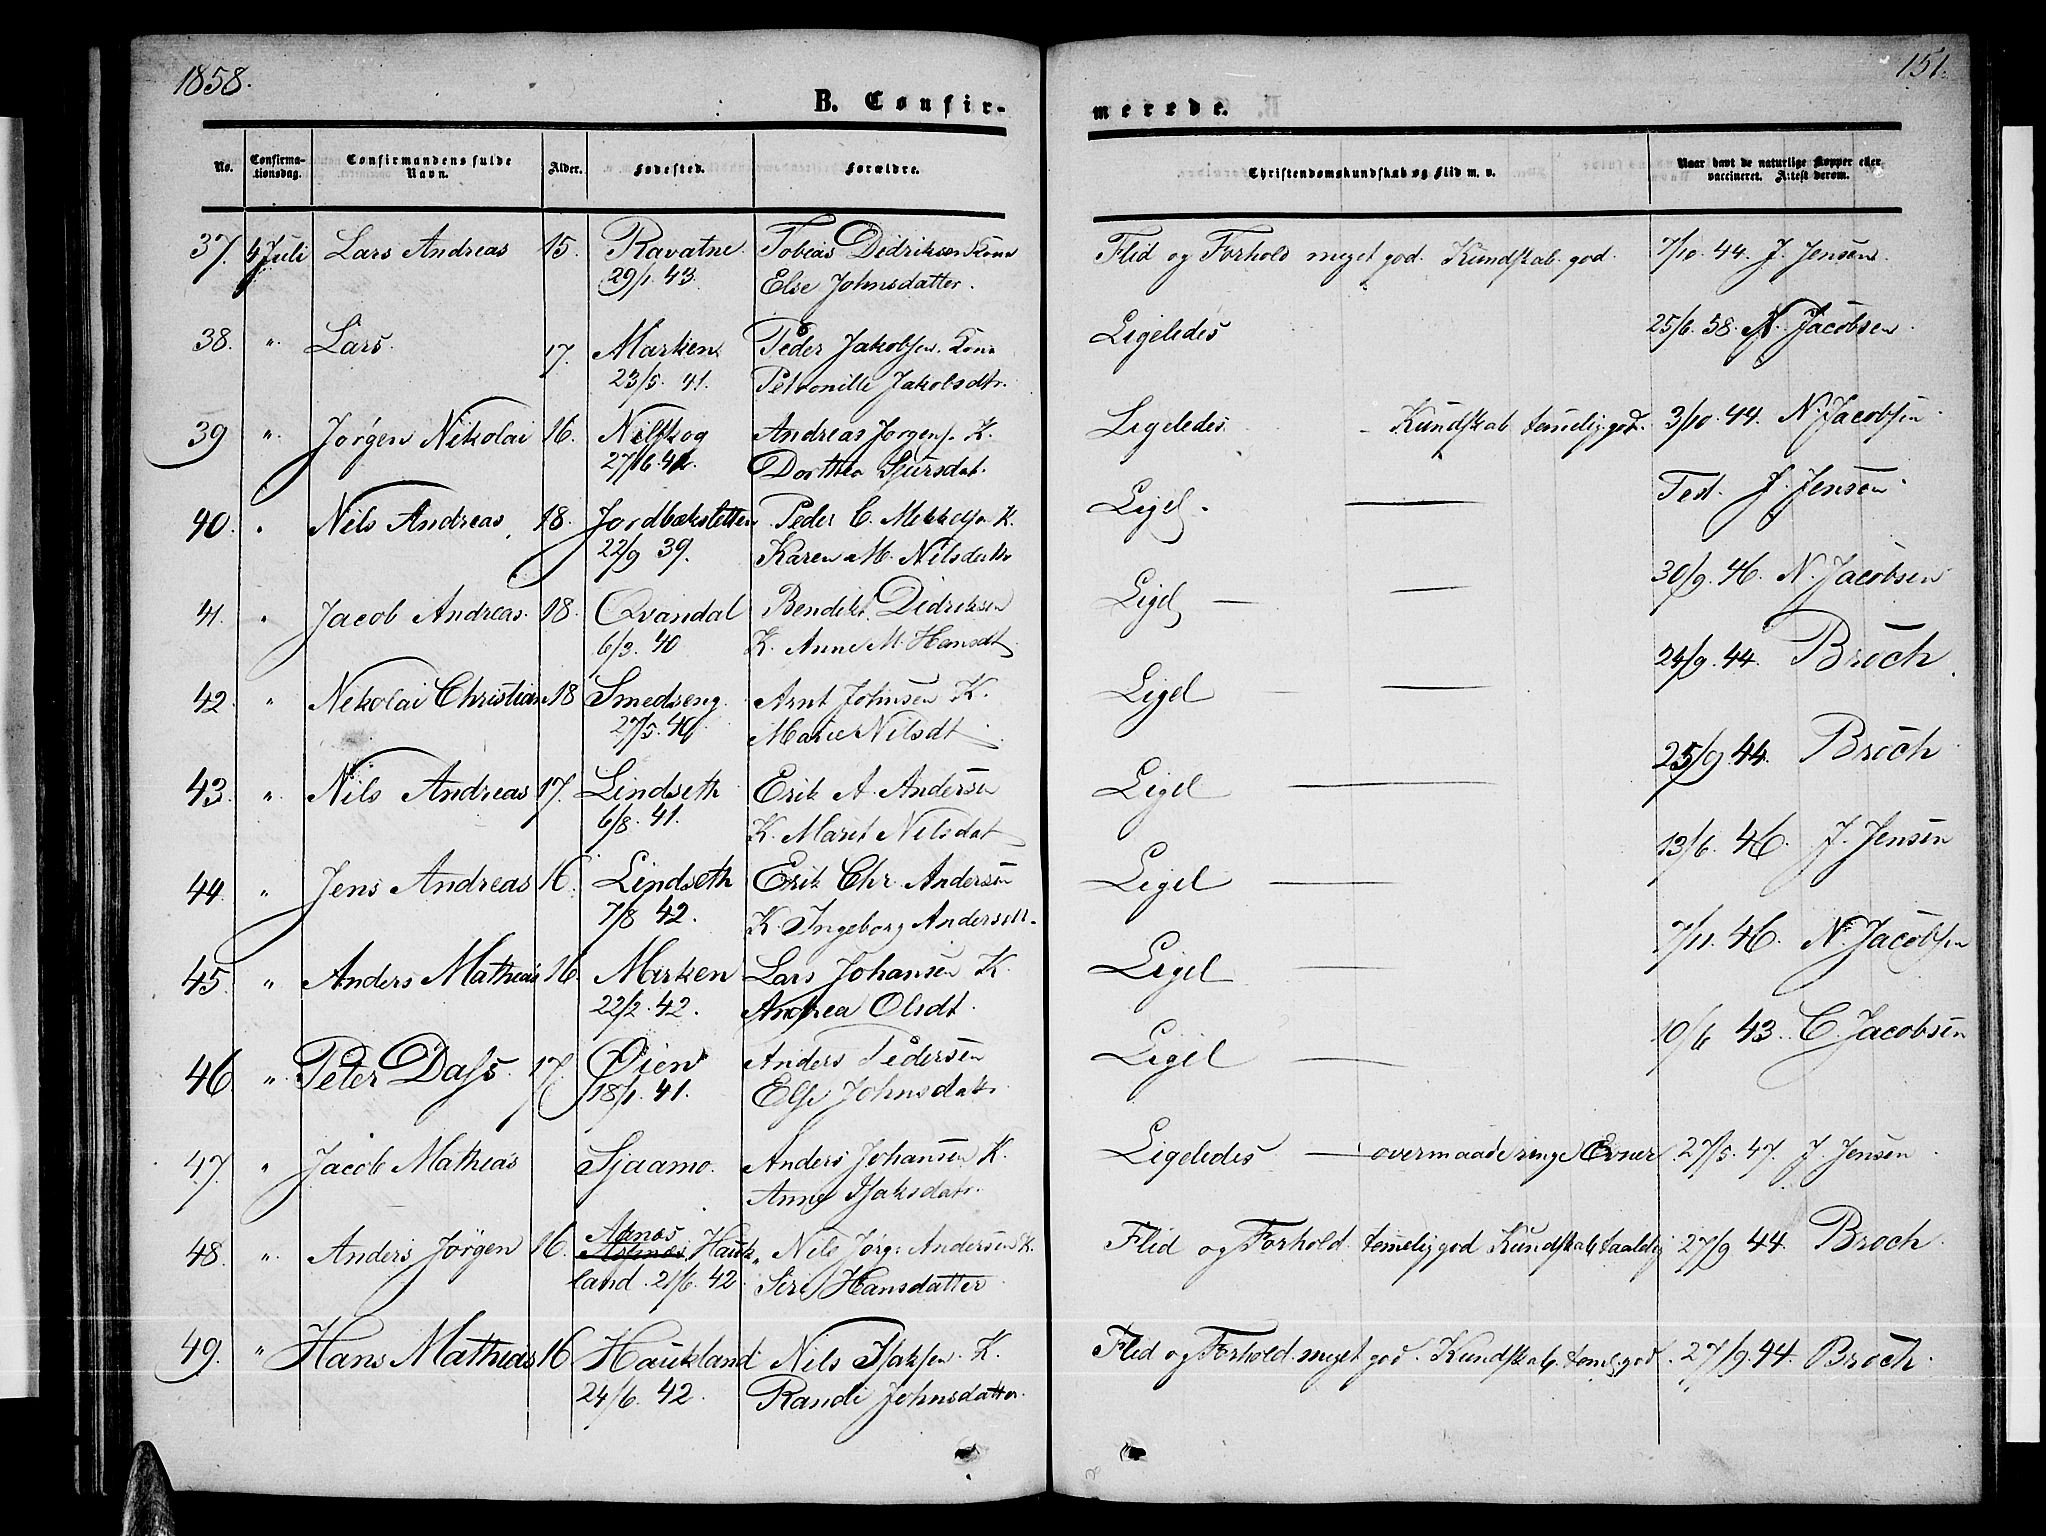 1858.
151.
B. Confir-
merede.
No.
Confirma-
tionsdag.
Confirmandens fulde
Navn.
Alder.
Fødested.
Forældre.
Christendomskundskab og Flid m. v.
Naar havt de naturlige Kopper eller
vaccineret. Attest derom.
37. Juli Lars Andreas 15. Ravatne Tobias Didriksen Kone Flid og Forhold meget god. Kundskab god. 7/10. 44. J. Jensen.
29/1. 43 Else Johnsdatter.
38. " Lars 17. Marken Peder Jakobsen. Kone Ligeledes 25/6. 58. N. Jacobsen.
23/5. 41. Petronille Jakobsdtr.
39 " Jørgen Nikolai 16. Andreas Jørgens. K. Ligeledes. Kundskab temelig god. 3/10. 44. N. Jacobsen
Dorthea Sjursdat.
40. " Nils Andreas, 18. Jordbæksletten Peder C. Mikkelsn K. Ligel. — Test. J. Jensen
22/9 39. Karen M. Nilsdatr
41. " Jacob Andreas. 18. Qvandal Bendikt Didriksen Ligel — — 30/9. 46. N. Jacobsen
6/3. 40 K. Anne M. Hansdt
42. " Nekolai Christian 18 Smedseng Arnt Johnsen K. Ligel — 24/9. 44. Broch
27/5. 40. Marie Nilsdt
43. " Nils Andreas 17. Lindseth Erik A. Andersen Ligel — 25/9 44. Broch
6/8. 41. K. Marit Nilsdat
44. " Jens Andreas 16. Lindseth Erik Chr. Andersen Ligel — 13/6. 46. J. Jensen
7/8 42. K. Ingeborg Andersdtr.
45. " Anders Mathias 16. Marken Lars Johansen K. Ligel — 7/11. 46. N. Jacobsen
22/2. 42. Andrea Olsdt.
46 " Peter Dass 17. Øien Anders Pedersen Ligel — 10/6 43. C. Jacobsen
18/1. 41. Else Johnsdatr.
47. " Jacob Mathias Sjaamo. Anders Johansen K. Ligeledes — overmaade ringe Evner 27/5. 47. J. Jensen
Anne Isaksdatr.
48. " Anders Jørgen 16. Hauk- Nils Jørg: Andersen K. Flid og Forhold temelig god Kundskab taalelig 27/9 44. Broch.
land. 21/6. 42 Siri Hansdatter
49. " Hans Mathias 16 Haukland Nils Isaksen. K. Flid og Forhold meget god. Kundskab. temel. god. 27/9. 44. Broch.
24/6. 42. Randi Johnsdatter.